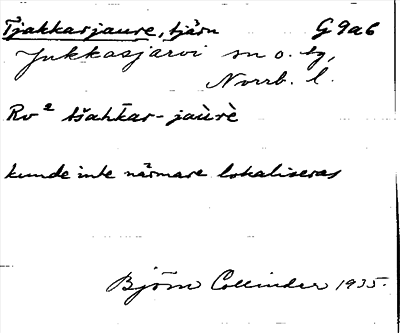 Tjakkarjaure, tjärn G9a6
Jukkasjärvi sn o. tg,
Norrb. l.
Rv² tšaħkar-jaùrè
kunde inte närmare lokaliseras
Björn Collinder 1935.